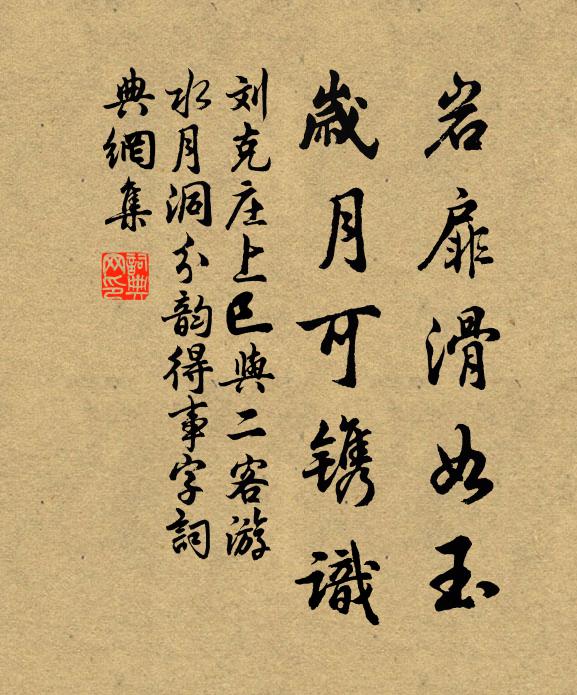 岩扉滑如玉
歲月可镌識
刘克庄上巳與二客游
水月洞分韵得事字詞
典網集
詞典網印